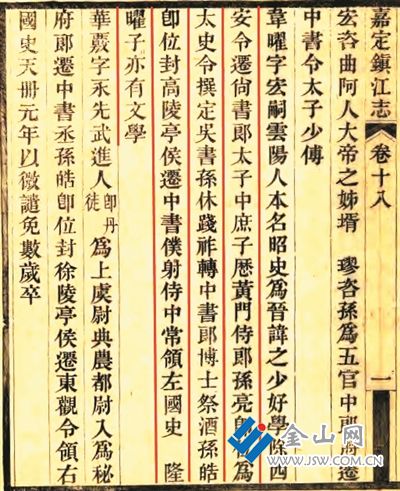 嘉定鎮江志 卷十八 一
宏咨曲阿人大帝之姊壻 璆咨孫爲五官中郎將遷
中書令太子少傅
韋曜字宏嗣雲陽人本名昭史爲晉諱之少好學除西
安令遷尙書郎太子中庶子歷黃門侍郎孫亮卽爲
太史令撰定吳書孫休踐祚轉中書郎博士祭酒孫皓
卽位封高陵亭侯遷中書僕射侍中常領左國史 隆
曜子亦有文學
華覈字永先武進人卽丹徒爲上虞尉典農都尉入爲秘
府郎遷中書丞孫皓卽位封徐陵亭侯遷東觀令領右
國史天冊元年以微譴免數歲卒
金山网
WWW.JSW.COM.CN